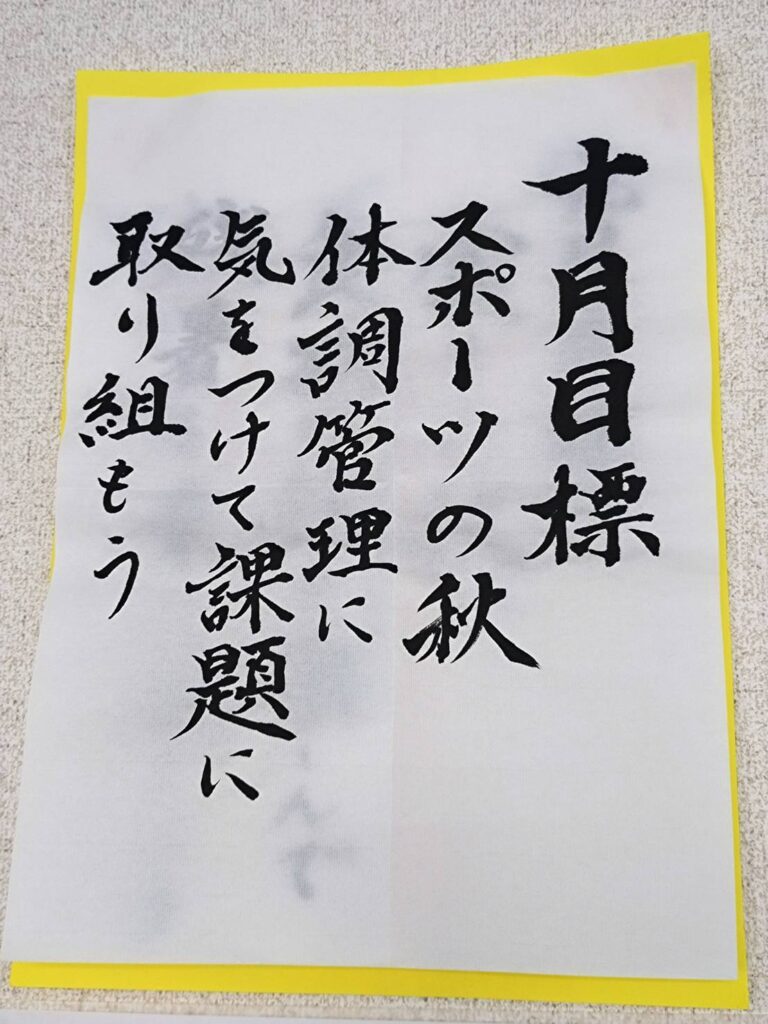 十月目標
スポーツの秋
体調管理に
気をつけて課題に
取り組もう